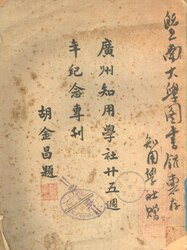 暨南大學圖書館惠存
知用學社贈
廣州知用學社廿五週
年紀念專刊
胡金昌題